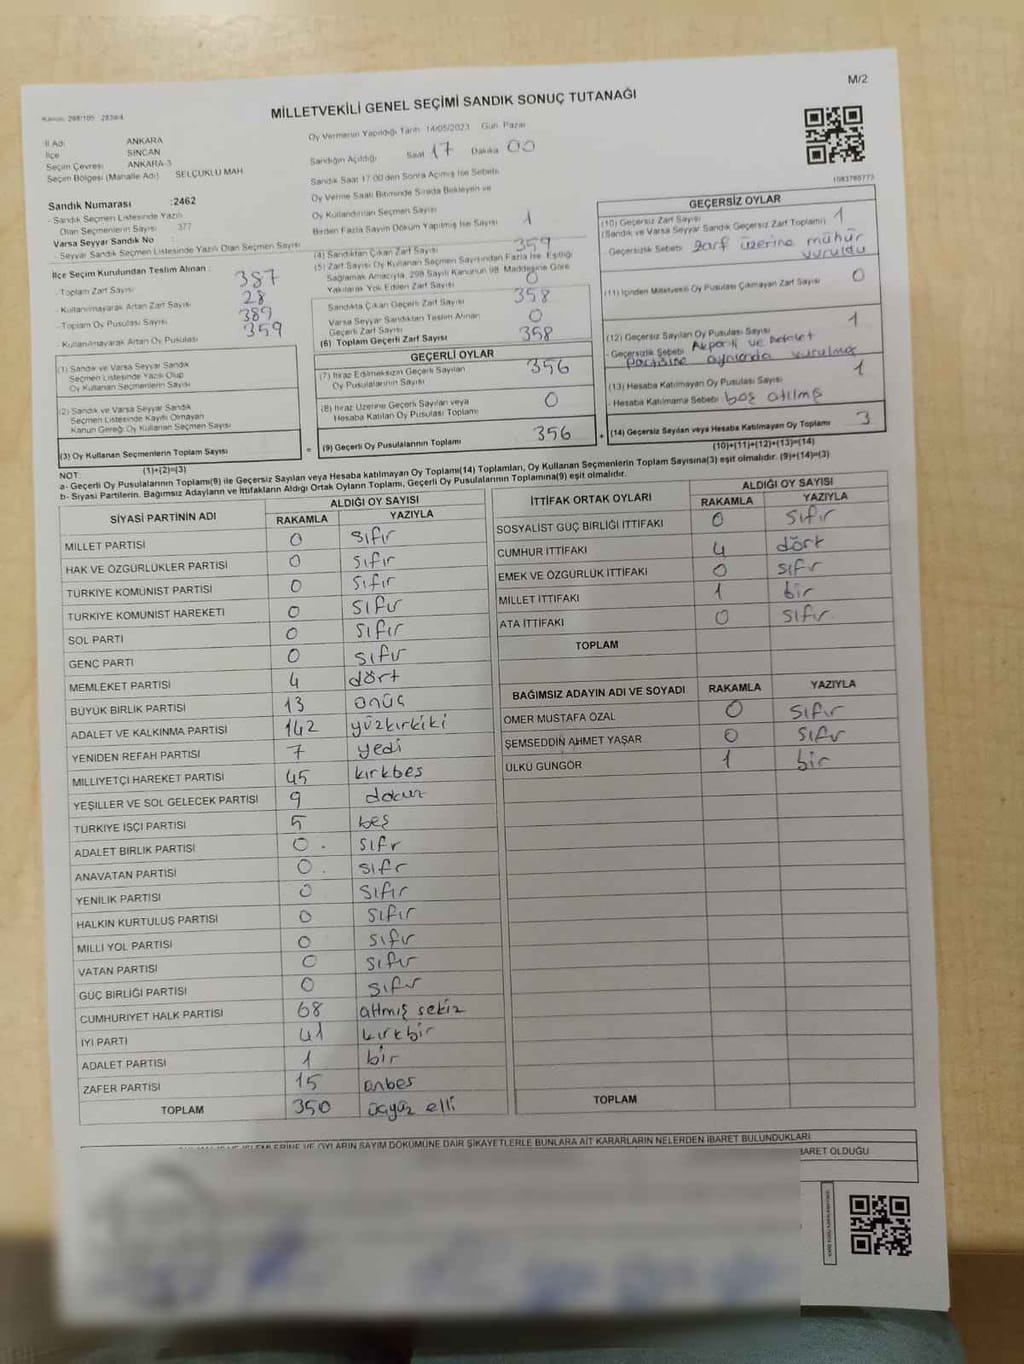 M/2
Kanun: 298/105 283/4
MİLLETVEKİLİ GENEL SEÇİMİ SANDIK SONUÇ TUTANAĞI
İl Adı ANKARA
İlçe SİNCAN
Seçim Çevresi ANKARA-3
Seçim Bölgesi (Mahalle Adı) SELÇUKLU MAH
Sandık Numarası :2462
- Sandık Seçmen Listesinde Yazılı
Olan Seçmenlerin Sayısı 377
Varsa Seyyar Sandık No :
- Seyyar Sandık Seçmen Listesinde Yazılı Olan Seçmen Sayısı
İlçe Seçim Kurulundan Teslim Alınan :
- Toplam Zarf Sayısı 387
- Kullanılmayarak Artan Zarf Sayısı 28
- Toplam Oy Pusulası Sayısı 389
- Kullanılmayarak Artan Oy Pusulası 359
(1) Sandık ve Varsa Seyyar Sandık
Seçmen Listesinde Yazılı Olup
Oy Kullanan Seçmenlerin Sayısı
(2) Sandık ve Varsa Seyyar Sandık
Seçmen Listesinde Kayıtlı Olmayan
Kanun Gereği Oy Kullanan Seçmen Sayısı
(3) Oy Kullanan Seçmenlerin Toplam Sayısı
(1)+(2)=(3)
Oy Vermenin Yapıldığı Tarih 14/05/2023 Gün Pazar
Sandığın Açıldığı Saat 17 Dakika 00
Sandık Saat 17:00'den Sonra Açılmış İse Sebebi
Oy Verme Saati Bitiminde Sırada Bekleyen ve
Oy Kullandırılan Seçmen Sayısı
Birden Fazla Sayım Döküm Yapılmış İse Sayısı 1
(4) Sandıktan Çıkan Zarf Sayısı 359
(5) Zarf Sayısı Oy Kullanan Seçmen Sayısından Fazla İse, Eşitliği
Sağlamak Amacıyla, 298 Sayılı Kanunun 98. Maddesine Göre
Yakılarak Yok Edilen Zarf Sayısı 0
Sandıkta Çıkan Geçerli Zarf Sayısı 358
Varsa Seyyar Sandıktan Teslim Alınan
Geçerli Zarf Sayısı 0
(6) Toplam Geçerli Zarf Sayısı 358
GEÇERLİ OYLAR
(7) İtiraz Edilmeksizin Geçerli Sayılan
Oy Pusulalarının Sayısı 356
(8) İtiraz Üzerine Geçerli Sayılan veya
Hesaba Katılan Oy Pusulası Toplamı 0
= (9) Geçerli Oy Pusulalarının Toplamı 356
1083780773
GEÇERSİZ OYLAR
(10) Geçersiz Zarf Sayısı
(Sandık ve Varsa Seyyar Sandık Geçersiz Zarf Toplamı) 1
Geçersizlik Sebebi zarf üzerine mühür
vuruldu
(11) İçinden Milletvekili Oy Pusulası Çıkmayan Zarf Sayısı 0
(12) Geçersiz Sayılan Oy Pusulası Sayısı 1
- Geçersizlik Sebebi Akparti ve
partisine vurulmuş
(13) Hesaba Katılmayan Oy Pusulası Sayısı 1
- Hesaba Katılmama Sebebi boş atılmış
+ (14) Geçersiz Sayılan veya Hesaba Katılmayan Oy Toplamı 3
(10)+(11)+(12)+(13)=(14)
NOT:
a- Geçerli Oy Pusulalarının Toplamı(9) ile Geçersiz Sayılan veya Hesaba katılmayan Oy Toplamı(14) Toplamları, Oy Kullanan Seçmenlerin Toplam Sayısına(3) eşit olmalıdır. (9)+(14)=(3)
b- Siyasi Partilerin, Bağımsız Adayların ve İttifakların Aldığı Ortak Oyların Toplamı, Geçerli Oy Pusulalarının Toplamına(9) eşit olmalıdır.
SİYASİ PARTİNİN ADI ALDIĞI OY SAYISI
RAKAMLA YAZIYLA
MİLLET PARTİSİ 0 sıfır
HAK VE ÖZGÜRLÜKLER PARTİSİ 0 sıfır
TÜRKİYE KOMÜNİST PARTİSİ 0 sıfır
TÜRKİYE KOMÜNİST HAREKETİ 0 sıfır
SOL PARTİ 0 sıfır
GENÇ PARTİ 0 sıfır
MEMLEKET PARTİSİ 4 dört
BÜYÜK BİRLİK PARTİSİ 13 onüç
ADALET VE KALKINMA PARTİSİ 142 yüzkırkiki
YENİDEN REFAH PARTİSİ 7 yedi
MİLLİYETÇİ HAREKET PARTİSİ 45 kırkbeş
YEŞİLLER VE SOL GELECEK PARTİSİ 9 dokuz
TÜRKİYE İŞÇİ PARTİSİ 5 beş
ADALET BİRLİK PARTİSİ 0 sıfır
ANAVATAN PARTİSİ 0 sıfır
YENİLİK PARTİSİ 0 sıfır
HALKIN KURTULUŞ PARTİSİ 0 sıfır
MİLLİ YOL PARTİSİ 0 sıfır
VATAN PARTİSİ 0 sıfır
GÜÇ BİRLİĞİ PARTİSİ 0 sıfır
CUMHURİYET HALK PARTİSİ 68 altmış sekiz
İYİ PARTİ 41 kırkbir
ADALET PARTİSİ 1 bir
ZAFER PARTİSİ 15 onbeş
TOPLAM 350 üçyüz elli
İTTİFAK ORTAK OYLARI ALDIĞI OY SAYISI
RAKAMLA YAZIYLA
SOSYALİST GÜÇ BİRLİĞİ İTTİFAKI 0 sıfır
CUMHUR İTTİFAKI 4 dört
EMEK VE ÖZGÜRLÜK İTTİFAKI 0 sıfır
MİLLET İTTİFAKI 1 bir
ATA İTTİFAKI 0 sıfır
TOPLAM
BAĞIMSIZ ADAYIN ADI VE SOYADI RAKAMLA YAZIYLA
ÖMER MUSTAFA ÖZAL 0 sıfır
ŞEMSEDDİN AHMET YAŞAR 0 sıfır
ÜLKÜ GÜNGÖR 1 bir
TOPLAM
OYLARIN SAYIM DÖKÜMÜNE DAİR ŞİKAYETLERLE BUNLARA AİT KARARLARIN NELERDEN İBARET BULUNDUKLARI
İBARET OLDUĞU